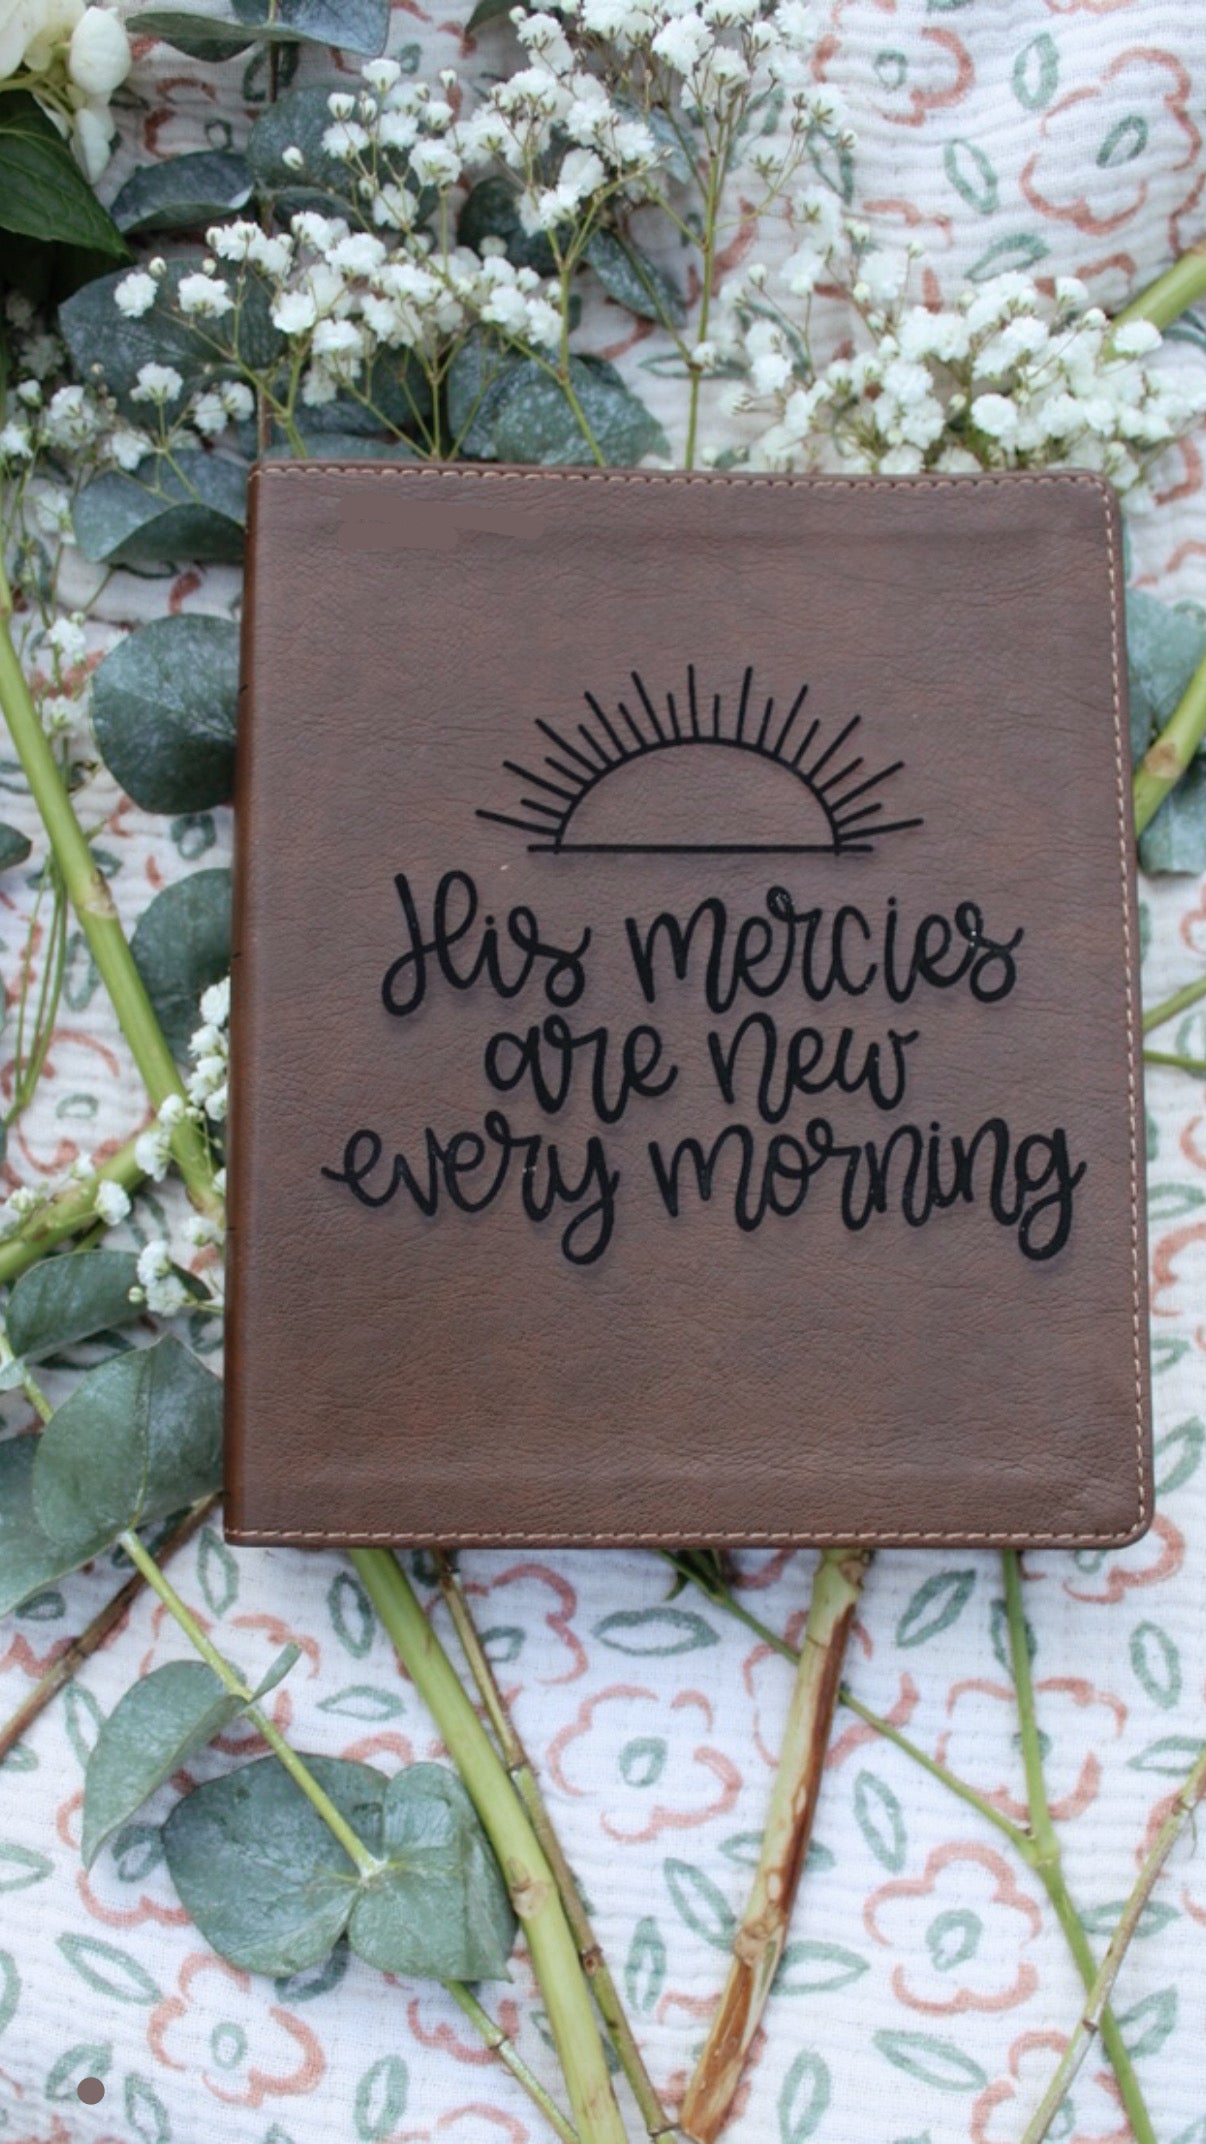 His mercies
are new
every morning